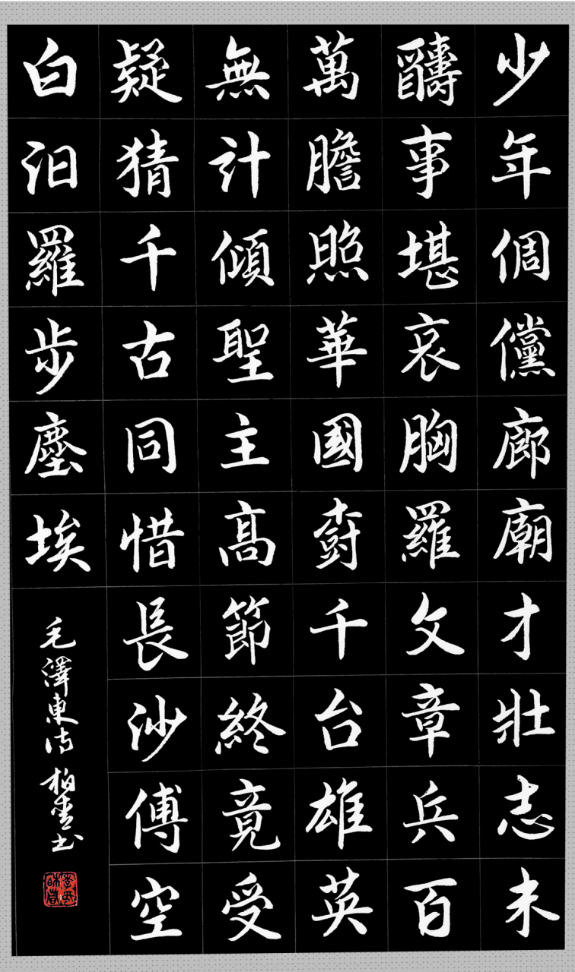 少年倜儻廊廟才壯志未
醻事堪哀胸羅文章兵百
萬膽照華國樹千台雄英
無計傾聖主高節終竟受
疑猜千古同惜長沙傅空
白汨羅步塵埃
毛澤東詩 柏书